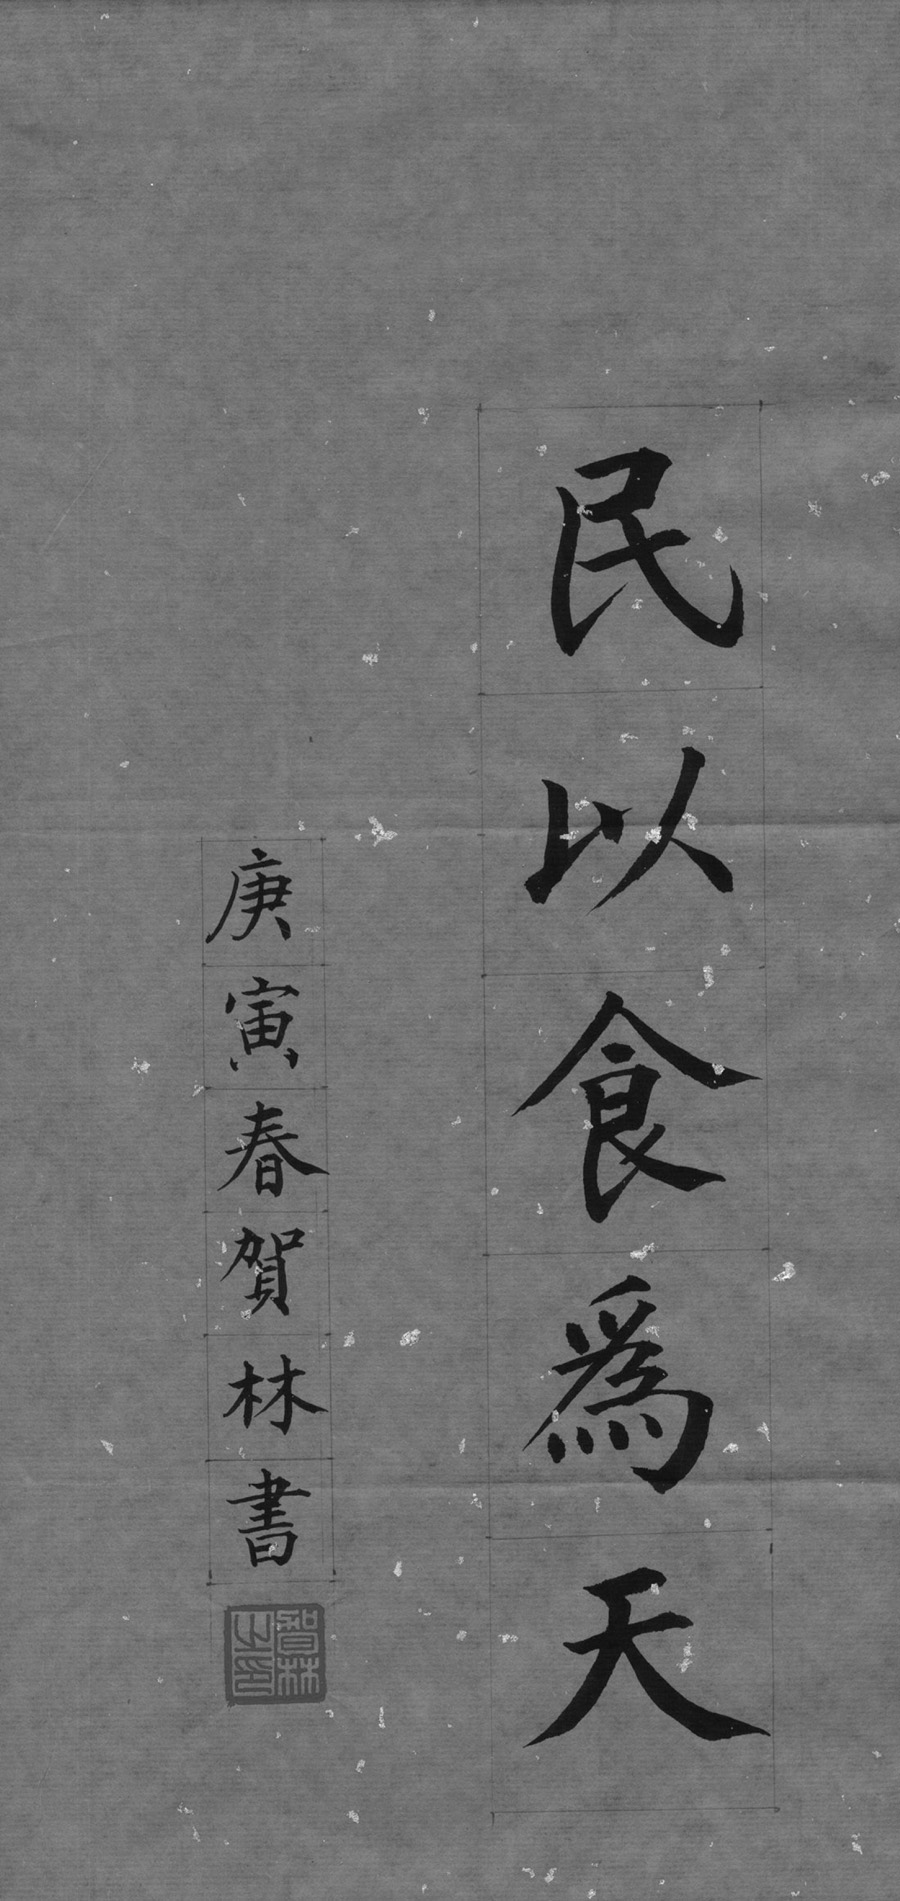 民以食為天
庚寅春賀林書
賀林之印